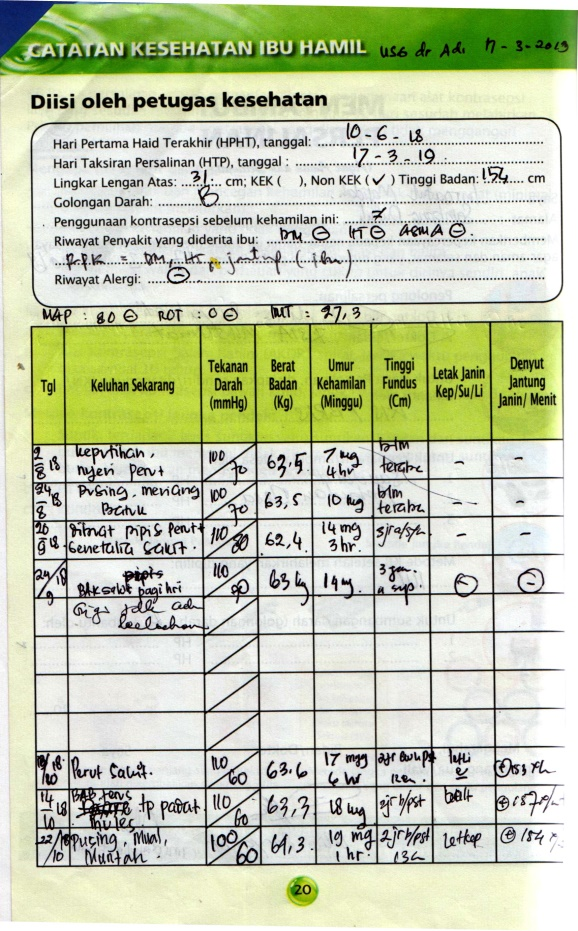 CATATAN KESEHATAN IBU HAMIL USG dr Adi 17-3-2019
Diisi oleh petugas kesehatan
Hari Pertama Haid Terakhir (HPHT), tanggal: 10-6-18
Hari Taksiran Persalinan (HTP), tanggal : 17-3-19
Lingkar Lengan Atas: 31 cm; KEK ( ), Non KEK (✓) Tinggi Badan: 154 cm
Golongan Darah: B
Penggunaan kontrasepsi sebelum kehamilan ini:
Riwayat Penyakit yang diderita ibu: DM ⊖ HT ⊖ ASMA ⊖
R.P.K = DM, HT, jantung (ibu)
Riwayat Alergi: ⊖
MAP : 80 ⊖ ROT : 0 ⊖ IMT : 27,3
Tgl Keluhan Sekarang Tekanan Darah (mmHg) Berat Badan (Kg) Umur Kehamilan (Minggu) Tinggi Fundus (Cm) Letak Janin Kep/Su/Li Denyut Jantung Janin/ Menit
2/8 18 keputihan, nyeri perut 100/70 63,5 7 mg 4 hr blm teraba - -
24/8 18 Pusing, meriang Batuk 100/70 63,5 10 mg blm teraba - -
20/9 18 pipis perut Genetalia sakit. 110/80 62,4 14 mg 3 hr. - -
24/9 18 BAK sakit pagi hri 110 63 kg 14 mg 3 jr ⊖ ⊖
Gigi tdk ada keluhan
18 10 Perut Sakit. 110/60 63,6 17 mg 6 hr ⊕ 153
14/10 18 BAB terus tp padat. mules. 110/60 63,3 18 mg 2jr b/pst ball ⊕ 157
22/10 18 Pusing, Mual, Muntah. 100/60 64,3 19 mg 1 hr. 2jr b/pst letkep ⊕ 154
20